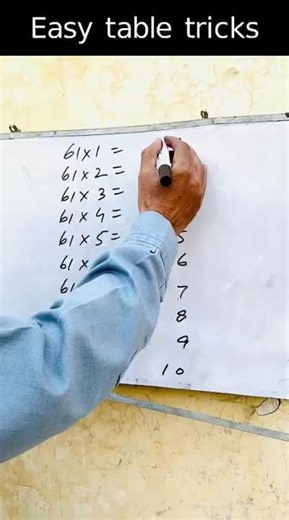 Easy table tricks
61 x 1 =
61 x 2 =
61 x 3 =
61 x 4 =
61 x 5 = 5
61 x 6
61 7
8
9
10